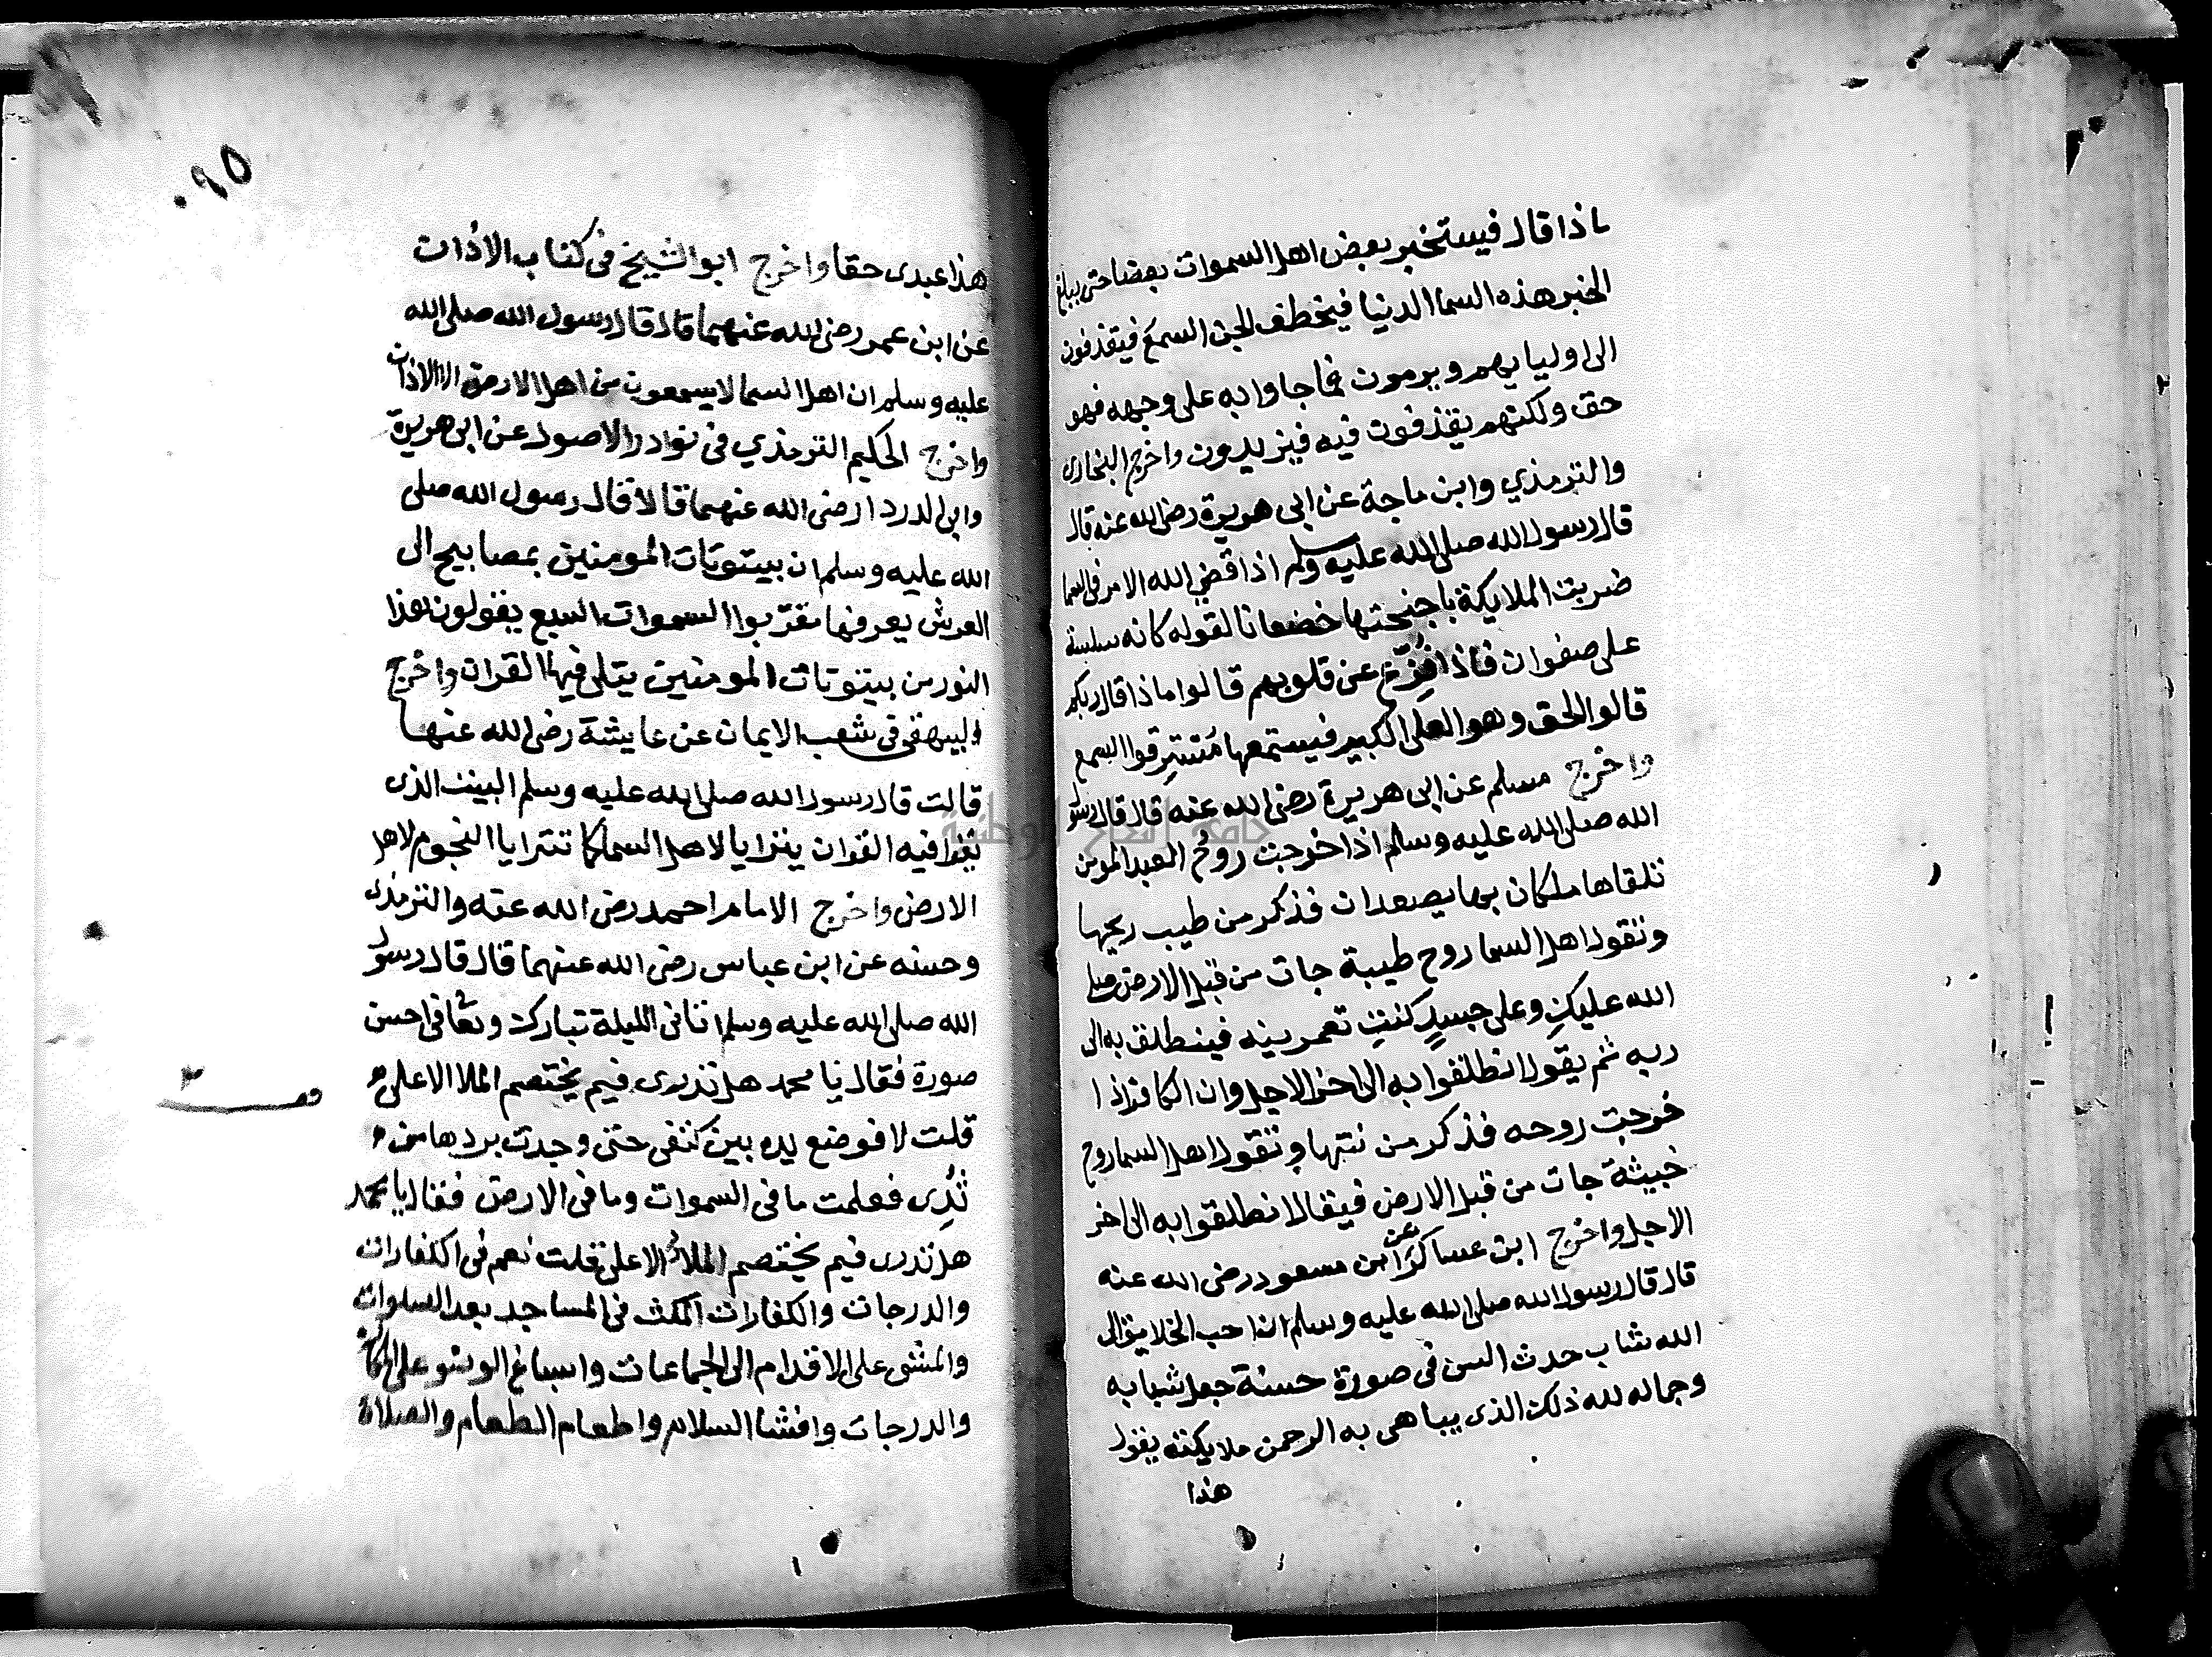 ماذا قال فيستخبر بعض اهل السموات بعضا حتى يبلغ
الخبر هذه السما الدنيا فيخطف الجن السمع فيقذفون
الى اوليايهم ويرمون فما جاوا به على وجهه فهو
حق ولكنهم يقذفون فيه فيزيدون واخرج البخارى
والترمذي وابن ماجة عن ابى هريرة رضى الله عنه قال
قال رسول الله صلى الله عليه وسلم اذا قضي الله الامر فى السما
ضربت الملايكة باجنحتها خضعانا لقوله كانه سلسلة
على صفوان فاذا فُزِّع عن قلوبهم قالوا ماذا قال ربكم
قالوا الحق وهو العلى الكبير فيستمعها مُسْترِقوا السمع
واخرج مسلم عن ابى هريرة رضى الله عنه قال قال رسول
الله صلى الله عليه وسلم اذا خرجت روح العبد المومن
تلقاها ملكان بها يصعدان فذكر من طيب ريحها
وتقول اهل السما روح طيبة جات من قبل الارض صلى
الله عليكِ وعلى جسدٍ كنتِ تعمرينه فينطلق به الى
ربه ثم يقول انطلقوا به الى اخر الاجل وان الكافر اذا
خرجت روحه فذكر من نتنها وتقول اهل السما روح
خبيثة جات من قبل الارض فيقال انطلقوا به الى اخر
الاجل واخرج ابن عساكر عن ابن مسعود رضى الله عنه
قال قال رسول الله صلى الله عليه وسلم ان احب الخلايق الى
الله شاب حدث السن فى صورة حسنة جعل شبابه
وجماله لله ذلك الذى يباهى به الرحمن ملايكته يقول
هذا
٠٩٥
هذا عبدى حقا واخرج ابو الشيخ فى كتاب الاذان
عن ابن عمر رضى الله عنهما قال قال رسول الله صلى الله
عليه وسلم ان اهل السما لا يسمعون من اهل الارض الا الاذان
واخرج الحكيم الترمذي فى نوادر الاصول عن ابى هريرة
وابى الدردا رضى الله عنهما قالا قال رسول الله صلى
الله عليه وسلم ان بيتوتات المومنين بمصابيح الى
العرش يعرفها مقرّبوا السموات السبع يقولون هذا
النور من بيتوتات المومنين يتلى فيها القران واخرج
البيهقى فى شعب الايمان عن عايشة رضى الله عنها
قالت قال رسول الله صلى الله عليه وسلم البيت الذى
يقرا فيه القران يترايا لاهل السما كما تترايا النجوم لاهل
الارض واخرج الامام احمد رضى الله عنه والترمذى
وحسنه عن ابن عباس رضى الله عنهما قال قال رسول
الله صلى الله عليه وسلم اتانى الليلة تبارك وتعا فى احسن
صورة فقال يا محمد هل تدرى فيم يختصم الملا الاعلى
قلت لا فوضع يده بين كتفى حتى وجدت بردها من
ثَدْيى فعلمت ما فى السموات وما فى الارض فقال يا محمد
هل تدرى فيم يختصم الملأ الاعلى قلت نعم فى الكفارات
والدرجات والكفارات المكث فى المساجد بعد الصلوات
والمشى على الاقدام الى الجماعات واسباغ الوضو على المكاره
والدرجات وافشا السلام واطعام الطعام والصلاة
جامعة النجاح الوطنية